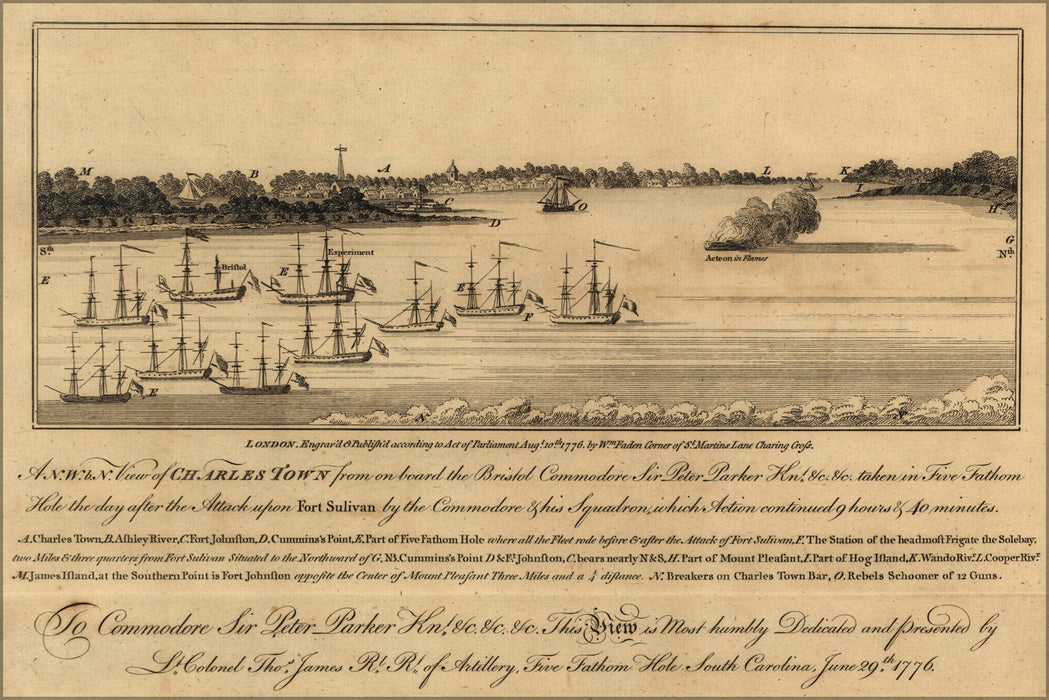 M
B
A
L
K
I
C
O
D
H
G
Sth
Nth
Acteon in Flames
E
Bristol
E
Experiment
E
F
E
N
LONDON. Engrav'd & Publish'd according to Act of Parliament Augt. 10th. 1776. by Wm. Faden Corner of St. Martins Lane Charing Cross.
A N.W.b.N. View of CHARLES TOWN from on board the Bristol Commodore Sir Peter Parker Knt. &c. &c. taken in Five Fathom
Hole the day after the Attack upon Fort Sulivan by the Commodore & his Squadron, which Action continued 9 hours & 40 minutes.
A. Charles Town, B. Ashley River, C. Fort Johnston, D. Cummins's Point, E. Part of Five Fathom Hole where all the Fleet rode before & after the Attack of Fort Sulivan, F. The Station of the headmost Frigate the Solebay,
two Miles & three quarters from Fort Sulivan Situated to the Northward of G, NB. Cummins's Point D & Ft. Johnston, C. bears nearly N & S, H. Part of Mount Pleasant, I. Part of Hog Island, K. Wando Rivr. L. Cooper Rivr.
M. James Island, at the Southern Point is Fort Johnston opposite the Center of Mount Pleasant Three Miles and a ¼ distance. N. Breakers on Charles Town Bar, O. Rebels Schooner of 12 Guns.
To Commodore Sir Peter Parker Knt. &c. &c. &c. This View is Most humbly Dedicated and presented by
Lt. Colonel Thos. James Rl. Rt. of Artillery, Five Fathom Hole South Carolina, June 29th. 1776.